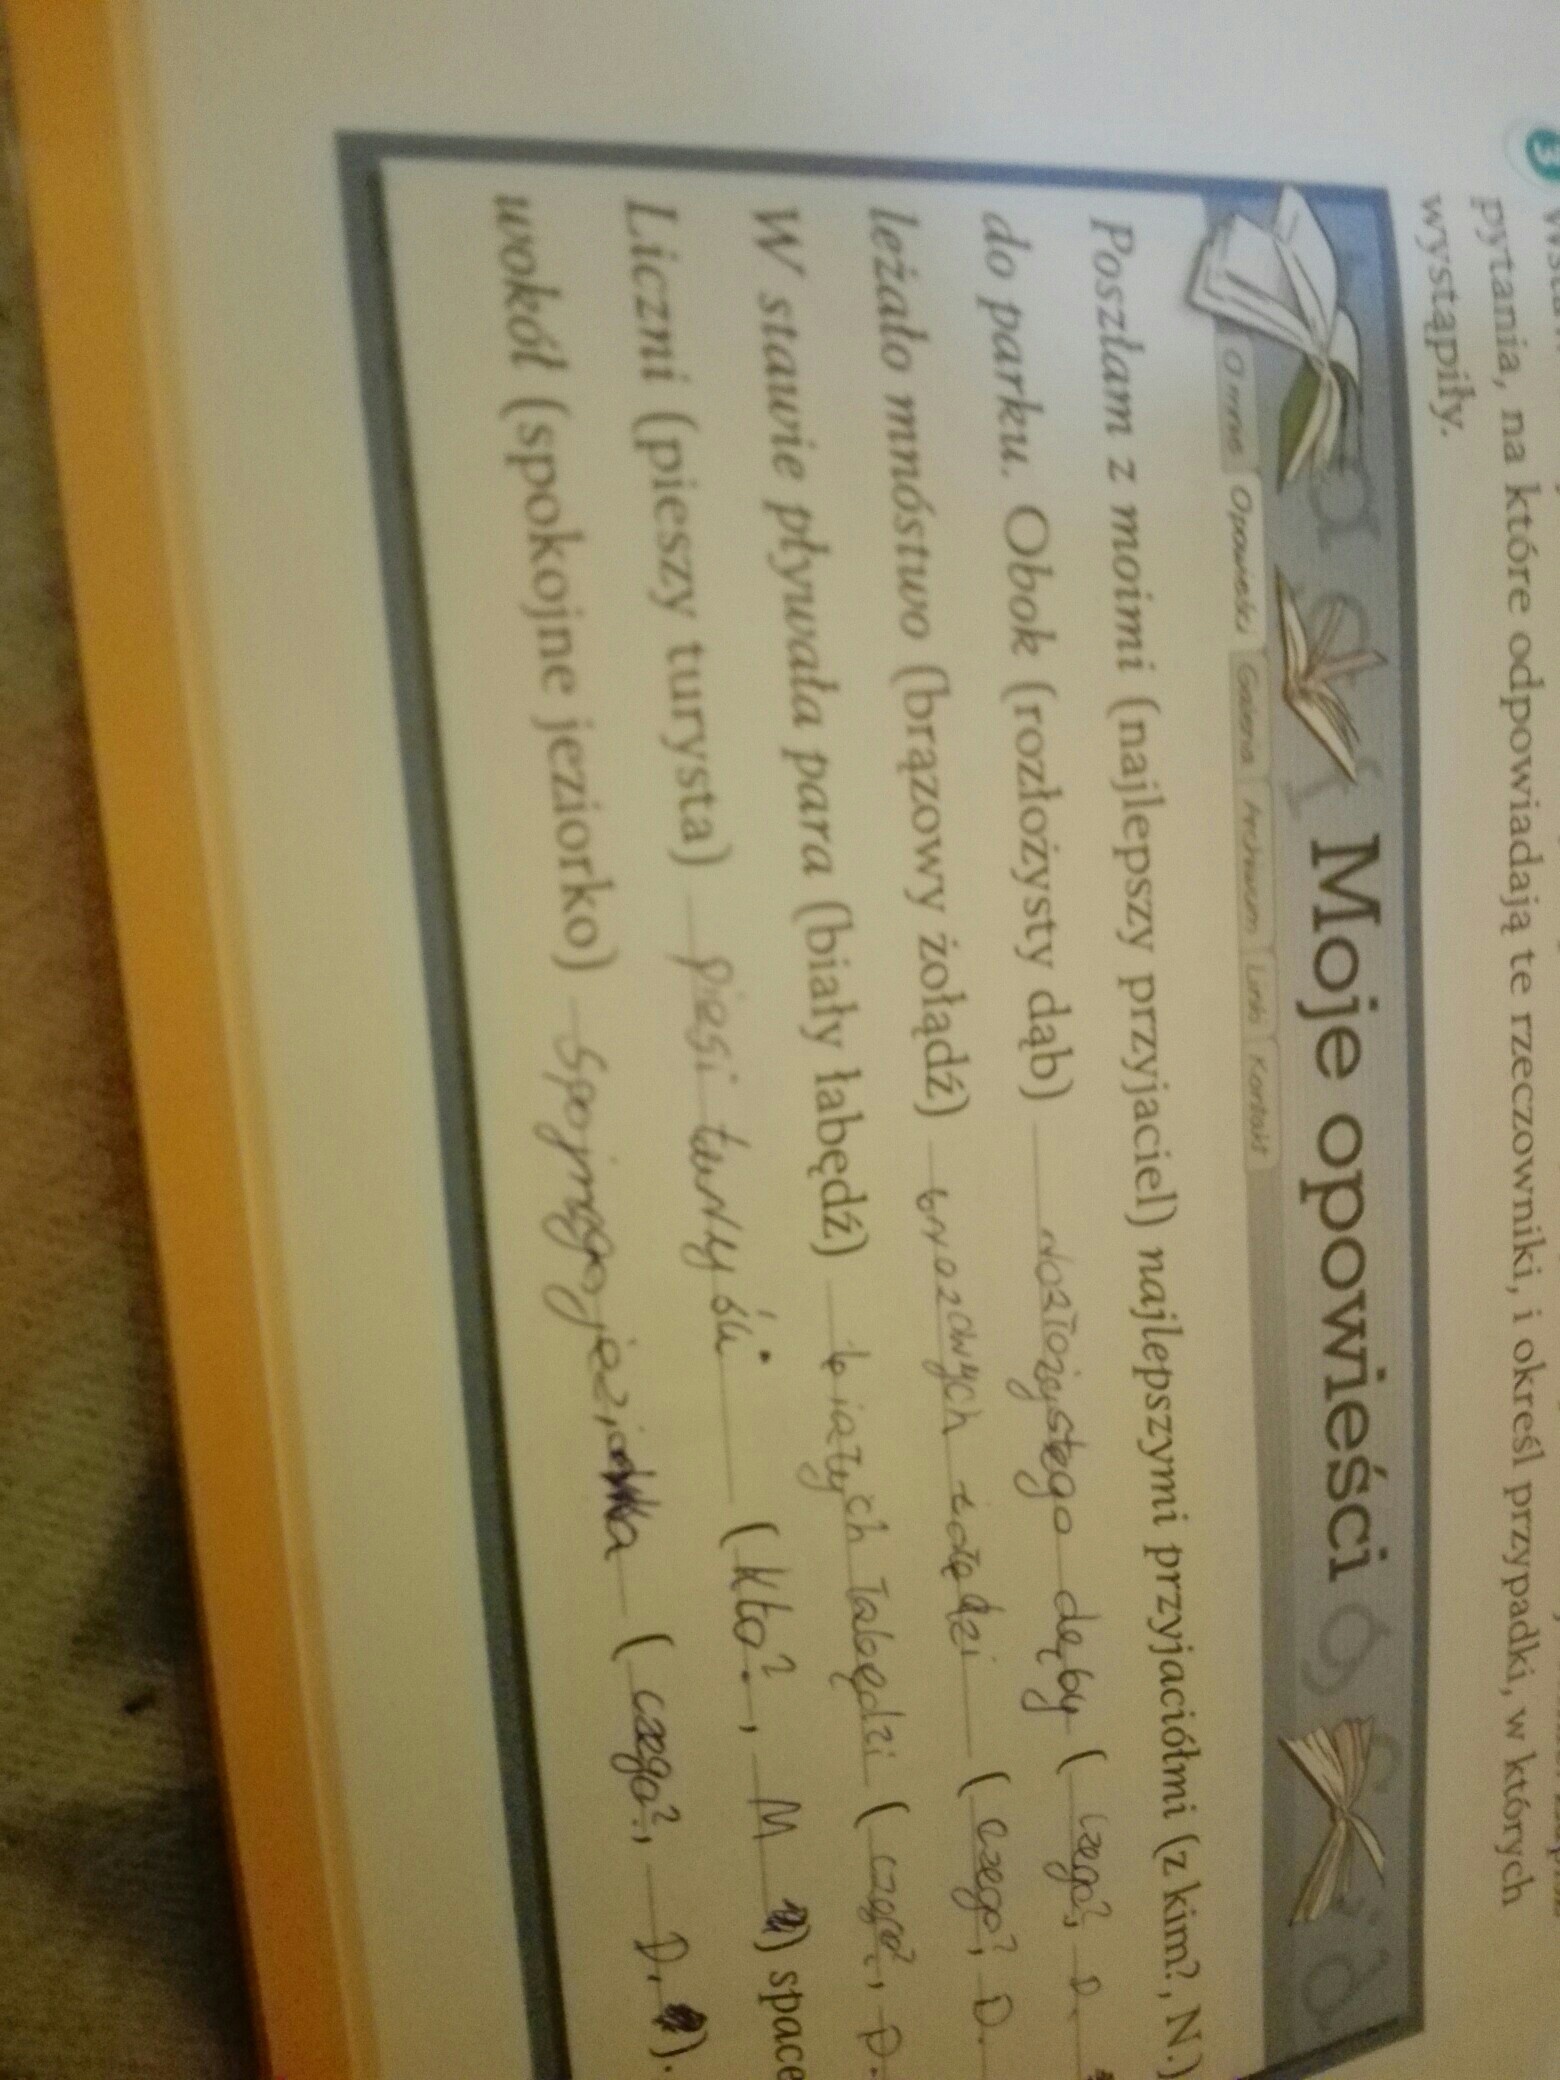 3
pytania, na które odpowiadają te rzeczowniki, i określ przypadki, w których
wystąpiły.
Moje opowieści
O mnie Opowieści Galeria Archiwum Linki Kontakt
Poszłam z moimi (najlepszy przyjaciel) najlepszymi przyjaciółmi (z kim?, N.)
do parku. Obok (rozłożysty dąb) rozłożystego dęby (czego?, D.
leżało mnóstwo (brązowy żołądź) brązowych żołędzi (czego?, D.
W stawie pływała para (biały łabędź) białych łabędzi (czego?, D.
Liczni (pieszy turysta) piesi turyści (kto?, M) space
wokół (spokojne jeziorko) spojnego jeziorka (czego?, D.).